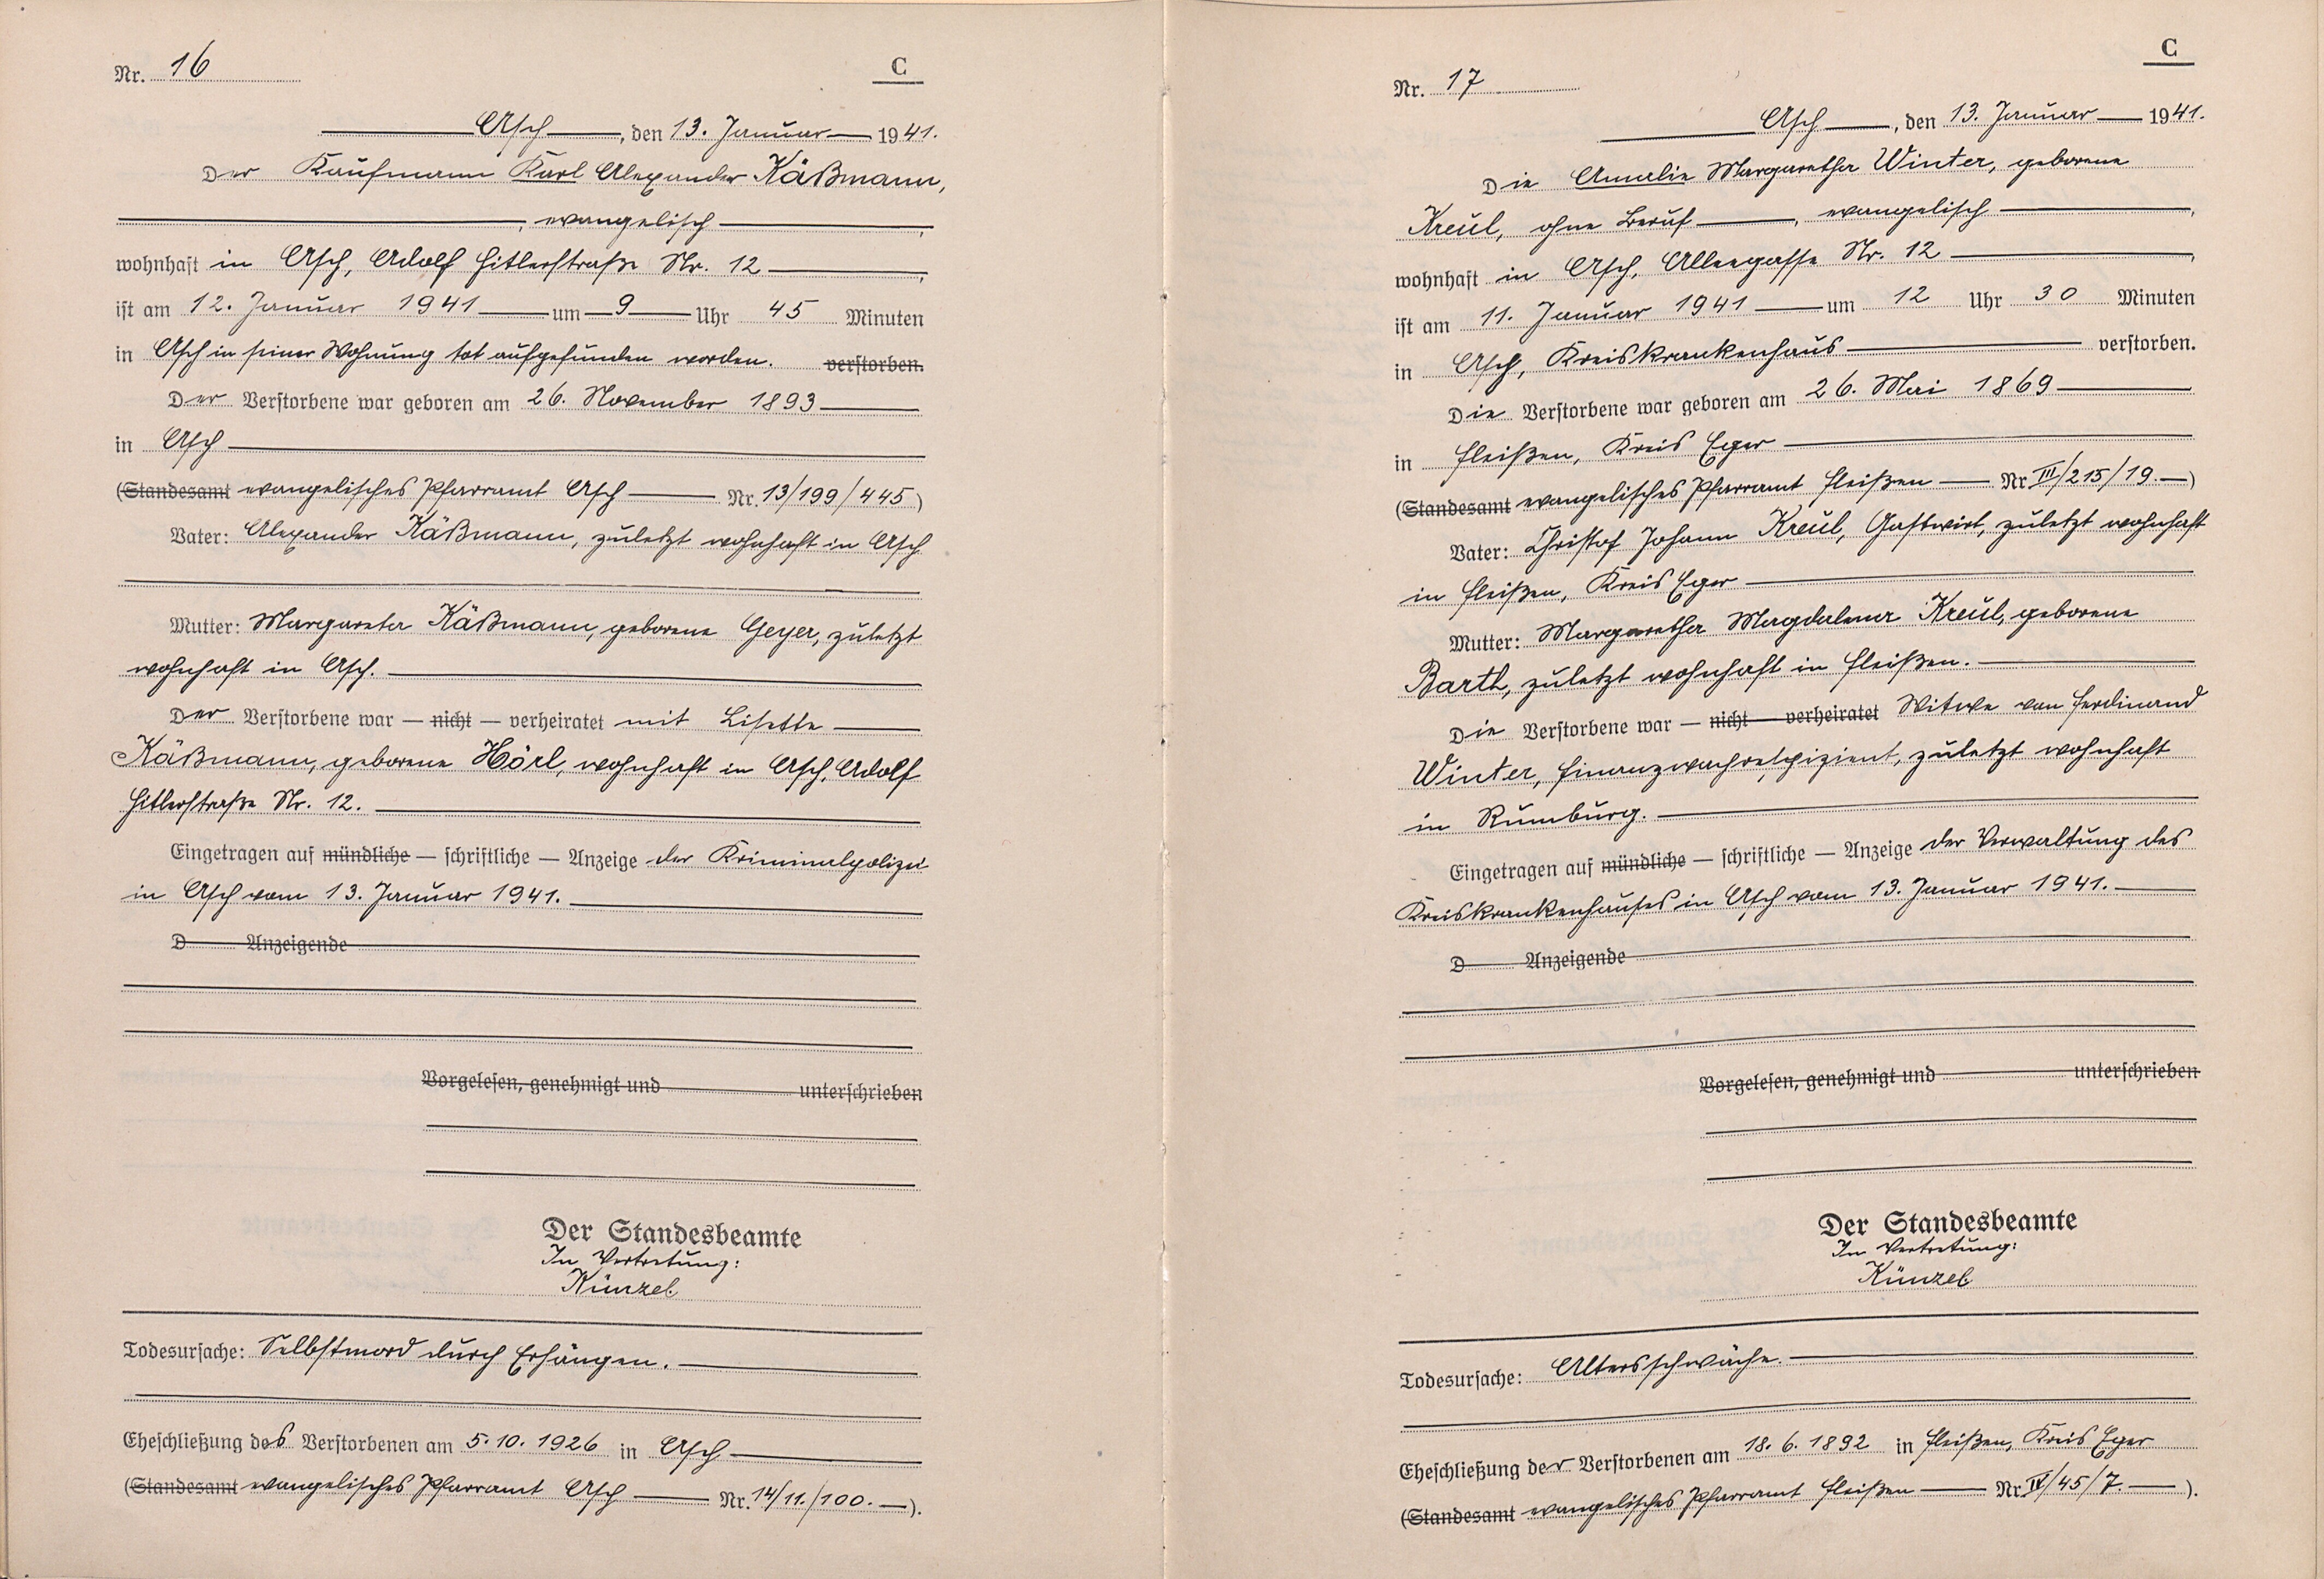 Nr. 16
C
Asch, den 13. Januar 1941.
Der Kaufmann Karl Alexander Käßmann,
, evangelisch ,
wohnhaft in Asch, Adolf Hitlerstraße Nr. 12 ,
ist am 12. Januar 1941 um 9 Uhr 45 Minuten
in Asch in seiner Wohnung tot aufgefunden worden. verstorben.
Der Verstorbene war geboren am 26. November 1893
in Asch
(Standesamt evangelisches Pfarramt Asch Nr. 13/199/445)
Vater: Alexander Käßmann, zuletzt wohnhaft in Asch
Mutter: Margareta Käßmann, geborene Geyer, zuletzt
wohnhaft in Asch.
Der Verstorbene war — nicht — verheiratet mit Lisette
Käßmann, geborene Hörl, wohnhaft in Asch, Adolf
Hitlerstraße Nr. 12.
Eingetragen auf mündliche — schriftliche — Anzeige der Kriminalpolizei
in Asch vom 13. Januar 1941.
D Anzeigende
Vorgelesen, genehmigt und unterschrieben
Der Standesbeamte
In Vertretung:
Künzel
Todesursache: Selbstmord durch Erhängen.
Eheschließung des Verstorbenen am 5.10.1926 in Asch
(Standesamt evangelisches Pfarramt Asch Nr. 14/11./100. —).
Nr. 17
C
Asch, den 13. Januar 1941.
Die Amalie Margaretha Winter, geborene
Kreul, ohne Beruf , evangelisch ,
wohnhaft in Asch, Alleegasse Nr. 12 ,
ist am 11. Januar 1941 um 12 Uhr 30 Minuten
in Asch, Kreiskrankenhaus verstorben.
Die Verstorbene war geboren am 26. Mai 1869
in Fleißen, Kreis Eger
(Standesamt evangelisches Pfarramt Fleißen Nr III/215/19. —)
Vater: Christof Johann Kreul, Gastwirt, zuletzt wohnhaft
in Fleißen, Kreis Eger
Mutter: Margaretha Magdalena Kreul, geborene
Barth, zuletzt wohnhaft in Fleißen.
Die Verstorbene war — nicht — verheiratet Witwe von Ferdinand
Winter, Finanzwachrespizient, zuletzt wohnhaft
in Rumburg.
Eingetragen auf mündliche — schriftliche — Anzeige der Verwaltung des
Kreiskrankenhauses in Asch vom 13. Januar 1941.
D Anzeigende
Vorgelesen, genehmigt und unterschrieben
Der Standesbeamte
In Vertretung:
Künzel
Todesursache: Altersschwäche.
Eheschließung der Verstorbenen am 18.6.1892 in Fleißen, Kreis Eger
(Standesamt evangelisches Pfarramt Fleißen Nr IV/45/7. —).